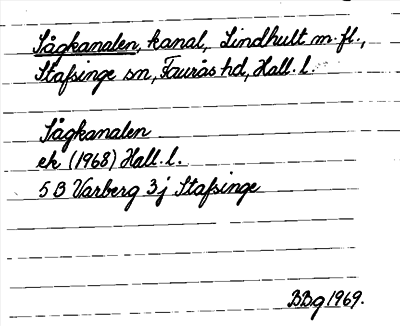 Sågkanalen, kanal, Lindhult m.fl.,
Stafsinge sn, Faurås hd, Hall. l.
Sågkanalen
ek (1968) Hall. l.
5 B Varberg 3j Stafsinge
BBg 1969.